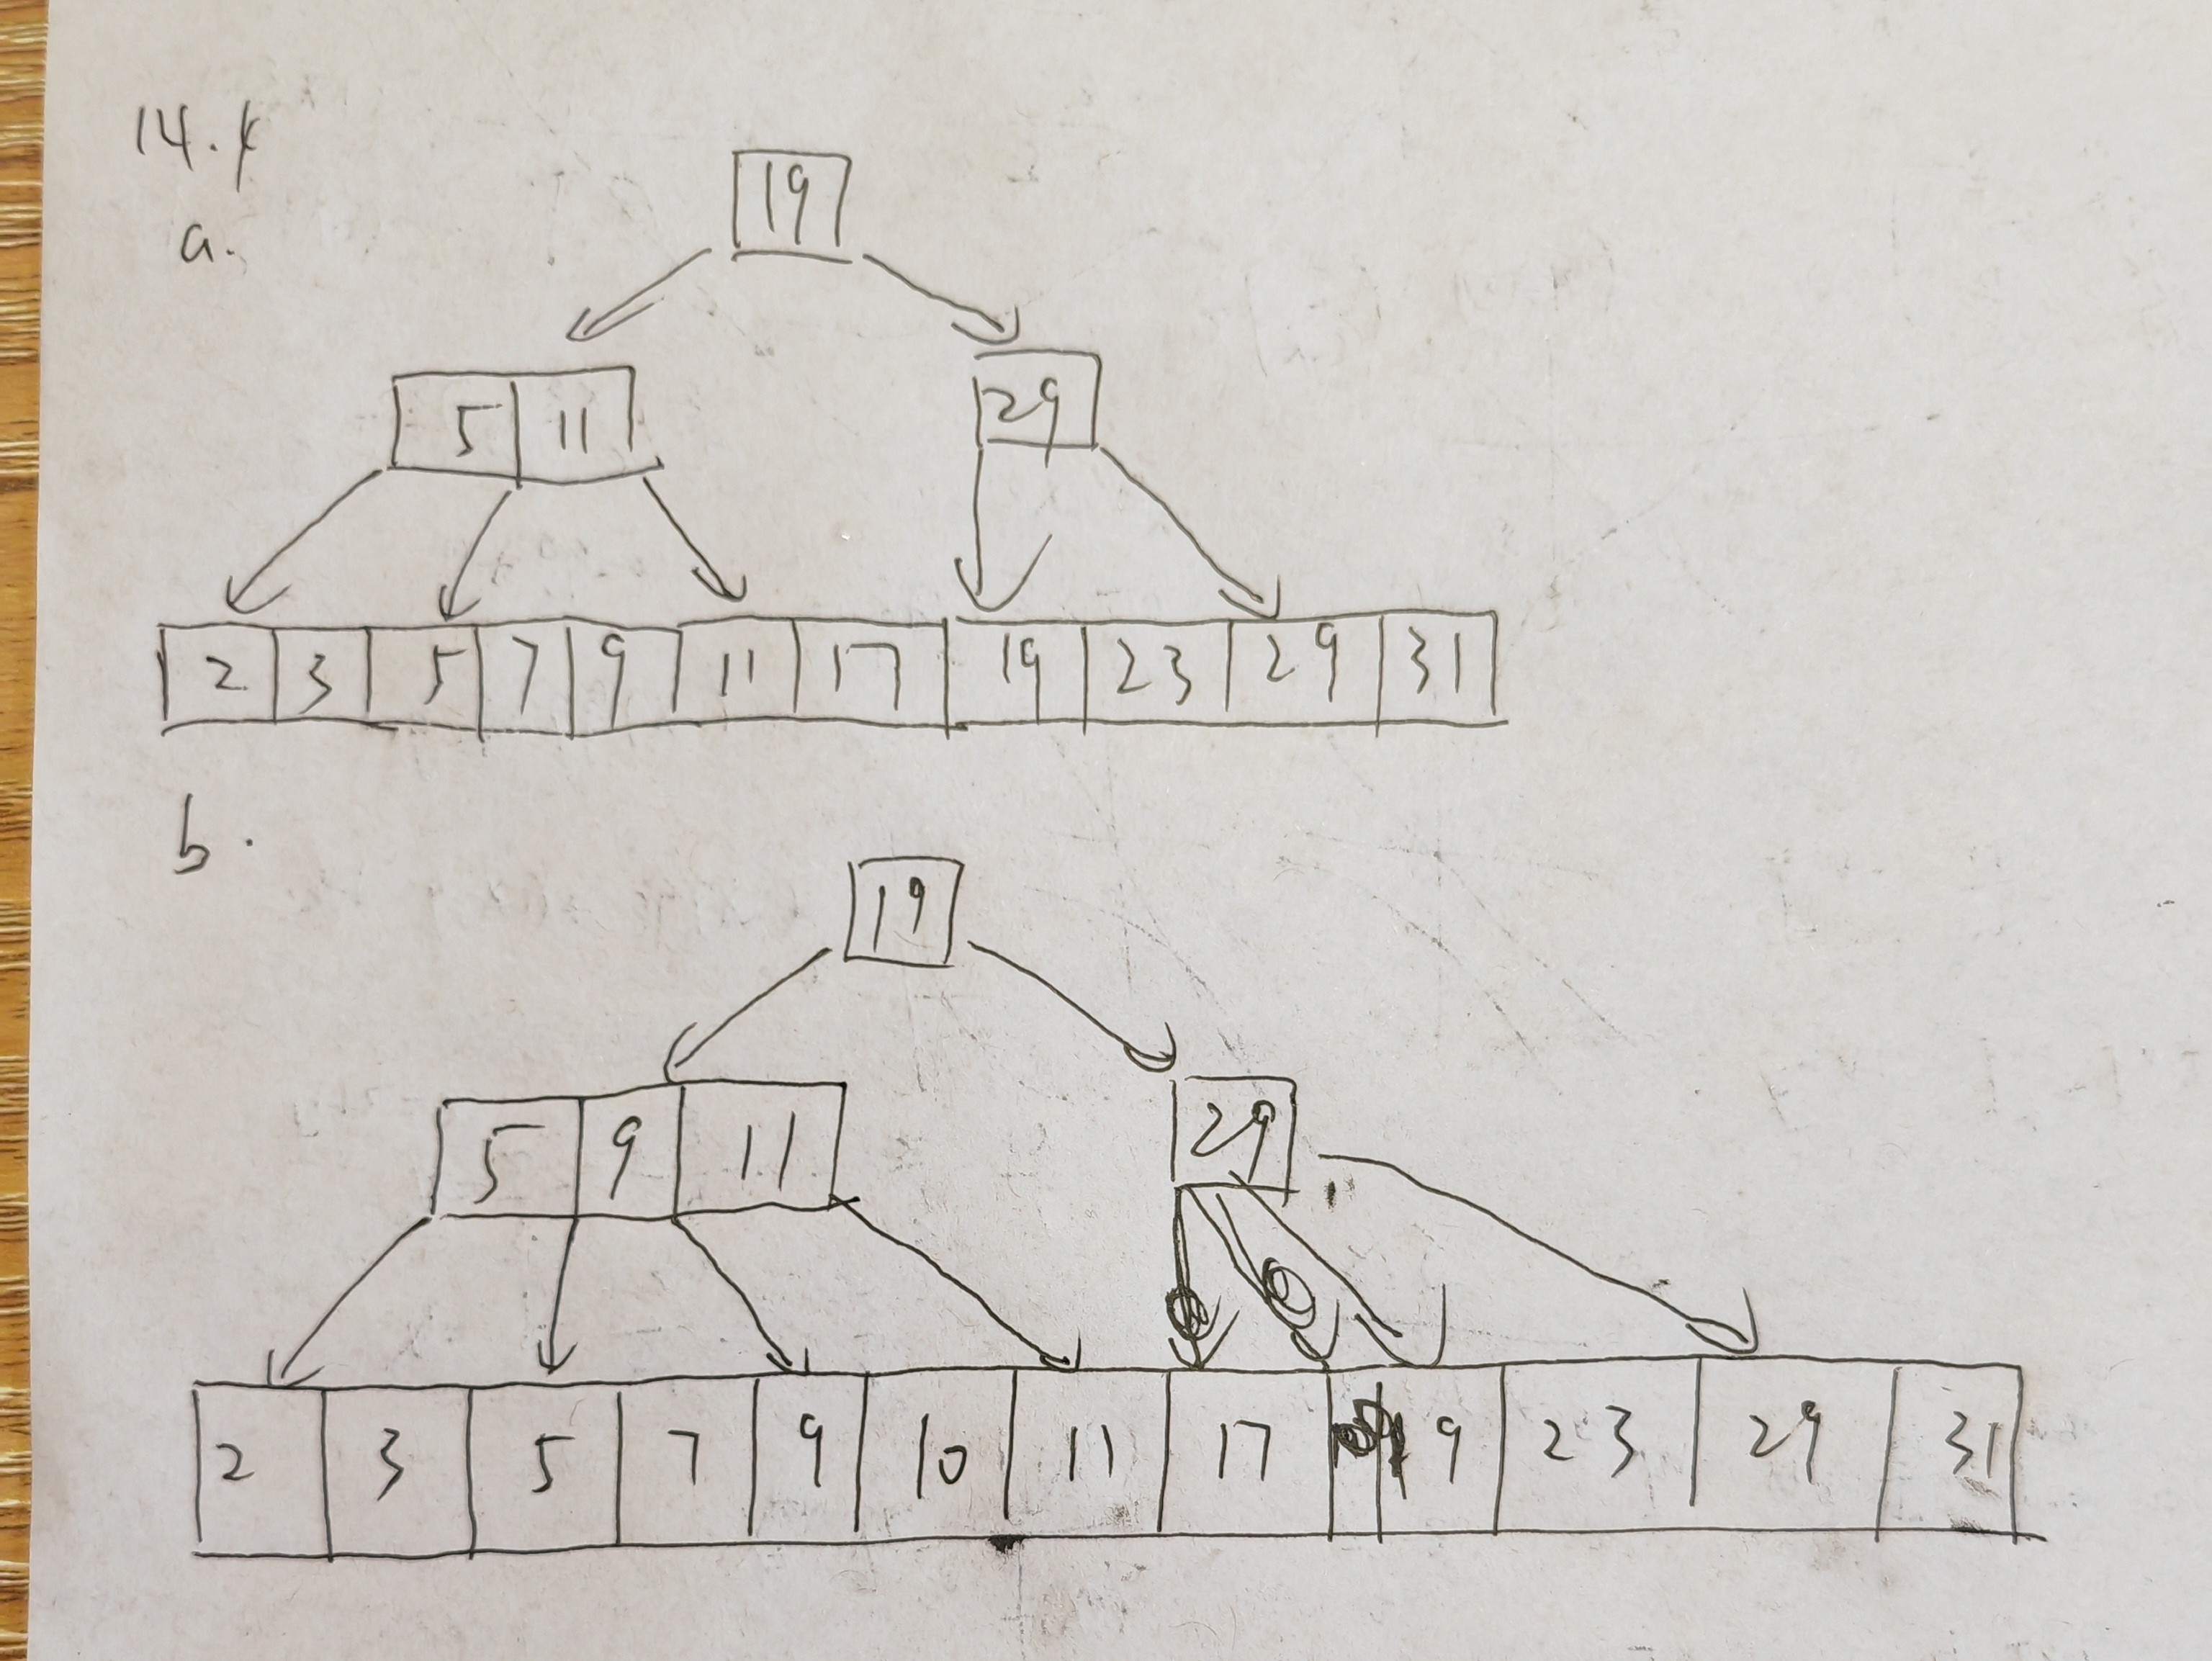 14.4
a.
19
5 11
29
2 3 5 7 9 11 17 19 23 29 31
b.
19
5 9 11
29
2 3 5 7 9 10 11 17 19 23 29 31